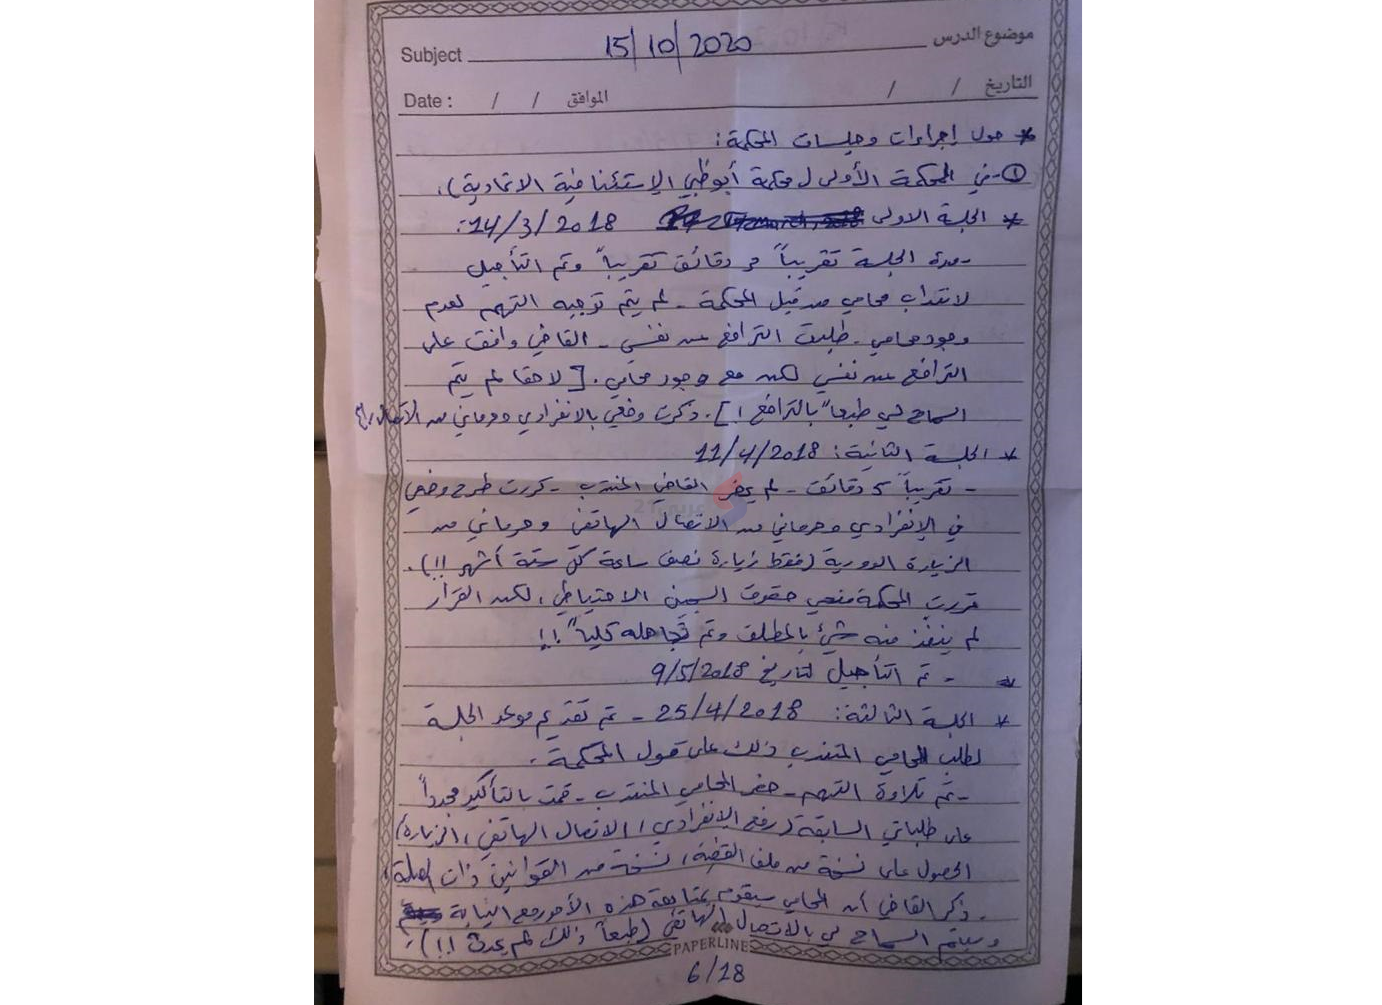 موضوع الدرس 15/10/2020 Subject
التاريخ / / الموافق / / Date :
* حول إجراءات وجلسات المحكمة :
① - في المحكمة الأولى (محكمة أبوظبي الإستئنافية الاتحادية).
* الجلسة الاولى 14/3/2018 :
- مدة الجلسة تقريباً دقائق تقريباً وتم التأجيل
لانتداب محامي من قبل المحكمة - لم يتم توجيه التهم لعدم
وجود محامي - طلبت الترافع عن نفسي - القاضي وافق على
الترافع عن نفسي لكن مع وجود محامي . [ لاحقا لم يتم
السماح لي طبعاً بالترافع ! ] . ذكرت وضعي بالانفرادي وحرماني من الاتصال
* الجلسة الثانية : 11/4/2018
- تقريباً 5 دقائق - لم يحضر القاضي المنتدب - كررت طرح وضعي
في الإنفرادي وحرماني من الاتصال الهاتفي وحرماني من
الزيارة الدورية (فقط زيارة نصف ساعة كل ستة أشهر !!) .
قررت المحكمة منحي حقوق السجين الاحتياطي ، لكن القرار
لم ينفذ منه شيء بالمطلق وتم تجاهله كلياً !!
- تم التأجيل لتاريخ 9/5/2018
* الجلسة الثالثة : 25/4/2018 - تم تقديم موعد الجلسة
لطلب المحامي المنتدب ذلك على قول المحكمة .
- تم تلاوة التهم - حضر المحامي المنتدب - قمت بالتأكيد مجدداً
على طلباتي السابقة (رفع الإنفرادي ، الاتصال الهاتفي ، الزيارة)
الحصول على نسخة من ملف القضية ، نسخة من القوانين ذات الصلة
- ذكر القاضي أن المحامي سيقوم بمتابعة هذه الأمور مع النيابة
وسيتم السماح لي بالاتصال الهاتفي (طبعاً ذلك لم يحدث !!) .
PAPERLINE
6/18